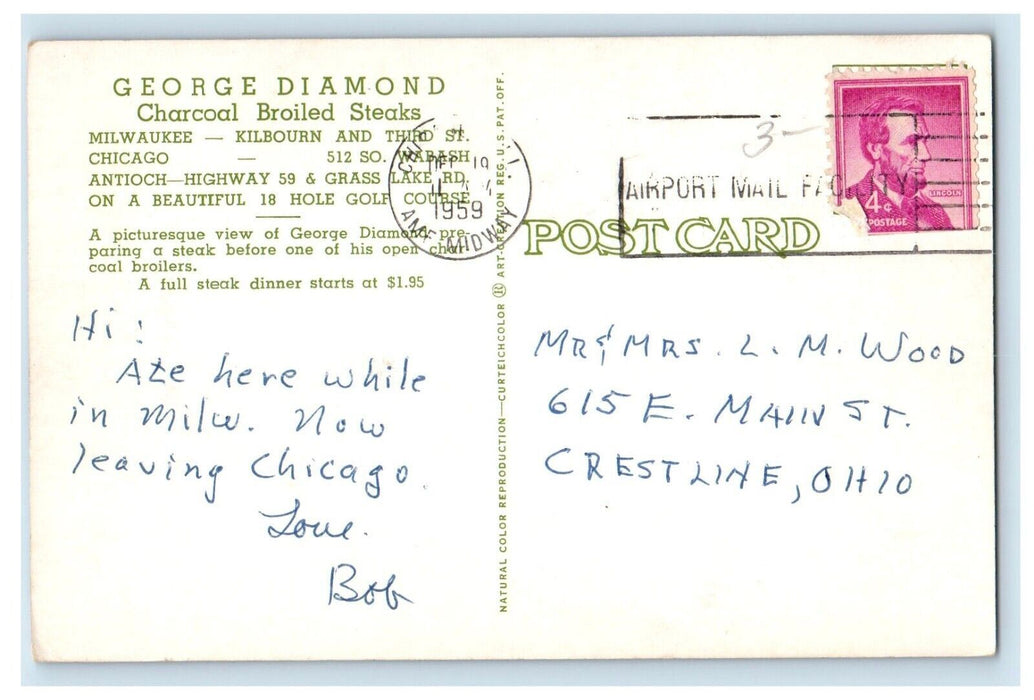 GEORGE DIAMOND
Charcoal Broiled Steaks
MILWAUKEE — KILBOURN AND THIRD ST.
CHICAGO — 512 SO. WABASH
ANTIOCH—HIGHWAY 59 & GRASS LAKE RD.
ON A BEAUTIFUL 18 HOLE GOLF COURSE
A picturesque view of George Diamond pre-
paring a steak before one of his open char-
coal broilers.
A full steak dinner starts at $1.95
Hi!
Ate here while
in Milw. Now
leaving Chicago.
Love.
Bob
NATURAL COLOR REPRODUCTION—CURTEICHCOLOR ® ART-CREATION REG. U.S. PAT. OFF.
19
1959
AMF MIDWAY
3-
AIRPORT MAIL FACILITY
LINCOLN
4¢
POSTAGE
POST CARD
MR & MRS. L. M. WOOD
615 E. MAIN ST.
CRESTLINE, OHIO